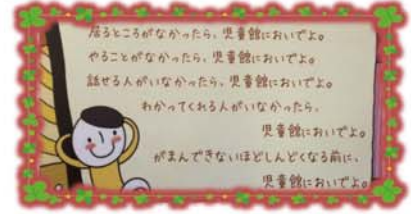 居るところがなかったら、児童館においでよ。
やることがなかったら、児童館においでよ。
話せる人がいなかったら、児童館においでよ。
わかってくれる人がいなかったら、
児童館においでよ。
がまんできないほどしんどくなる前に、
児童館においでよ。